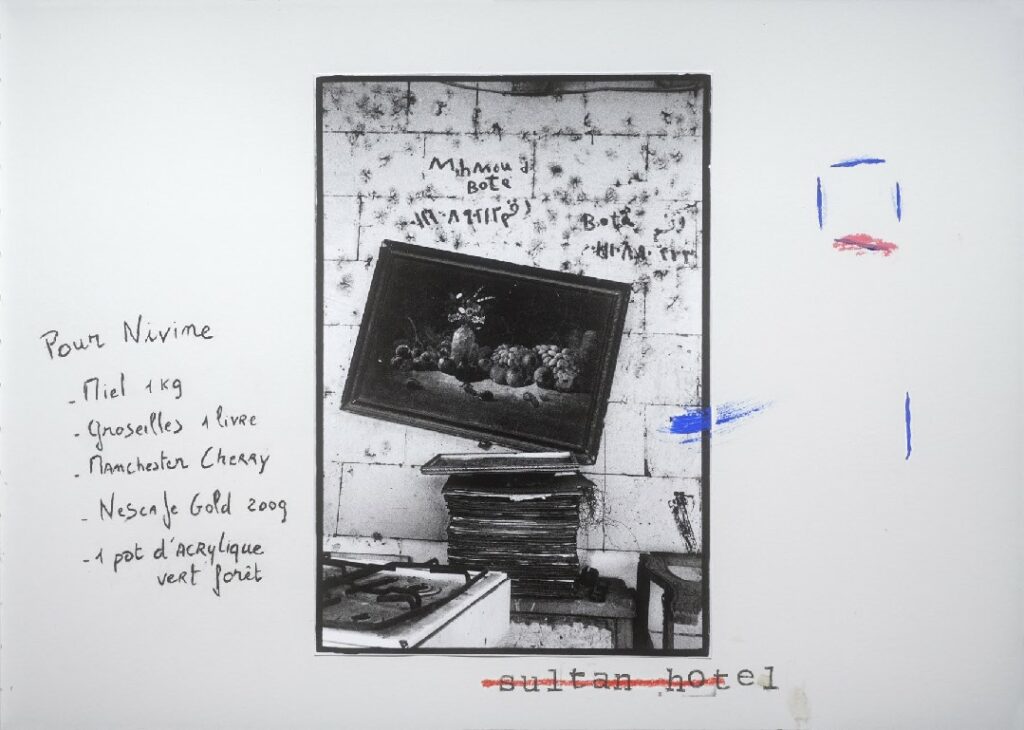 Pour Nivine
- Miel 1 kg
- Groseilles 1 livre
- Manchester Cherry
- Nescafe Gold 200g
- 1 pot d'acrylique
vert forêt
Mihmoud
Bota
Bota
sultan hotel